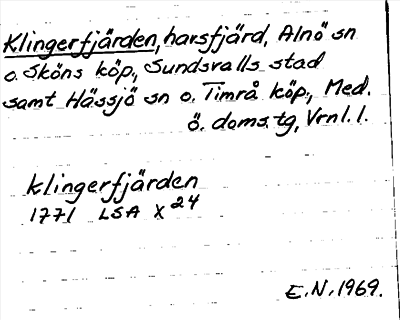 Klingerfjärden, havsfjärd, Alnö sn
o. Sköns köp., Sundsvalls stad
samt Hässjö sn o. Timrå köp., Med.
ö. doms. tg, Vrnl. l.
Klingerfjärden
1771 LSA X 24
E.N. 1969.